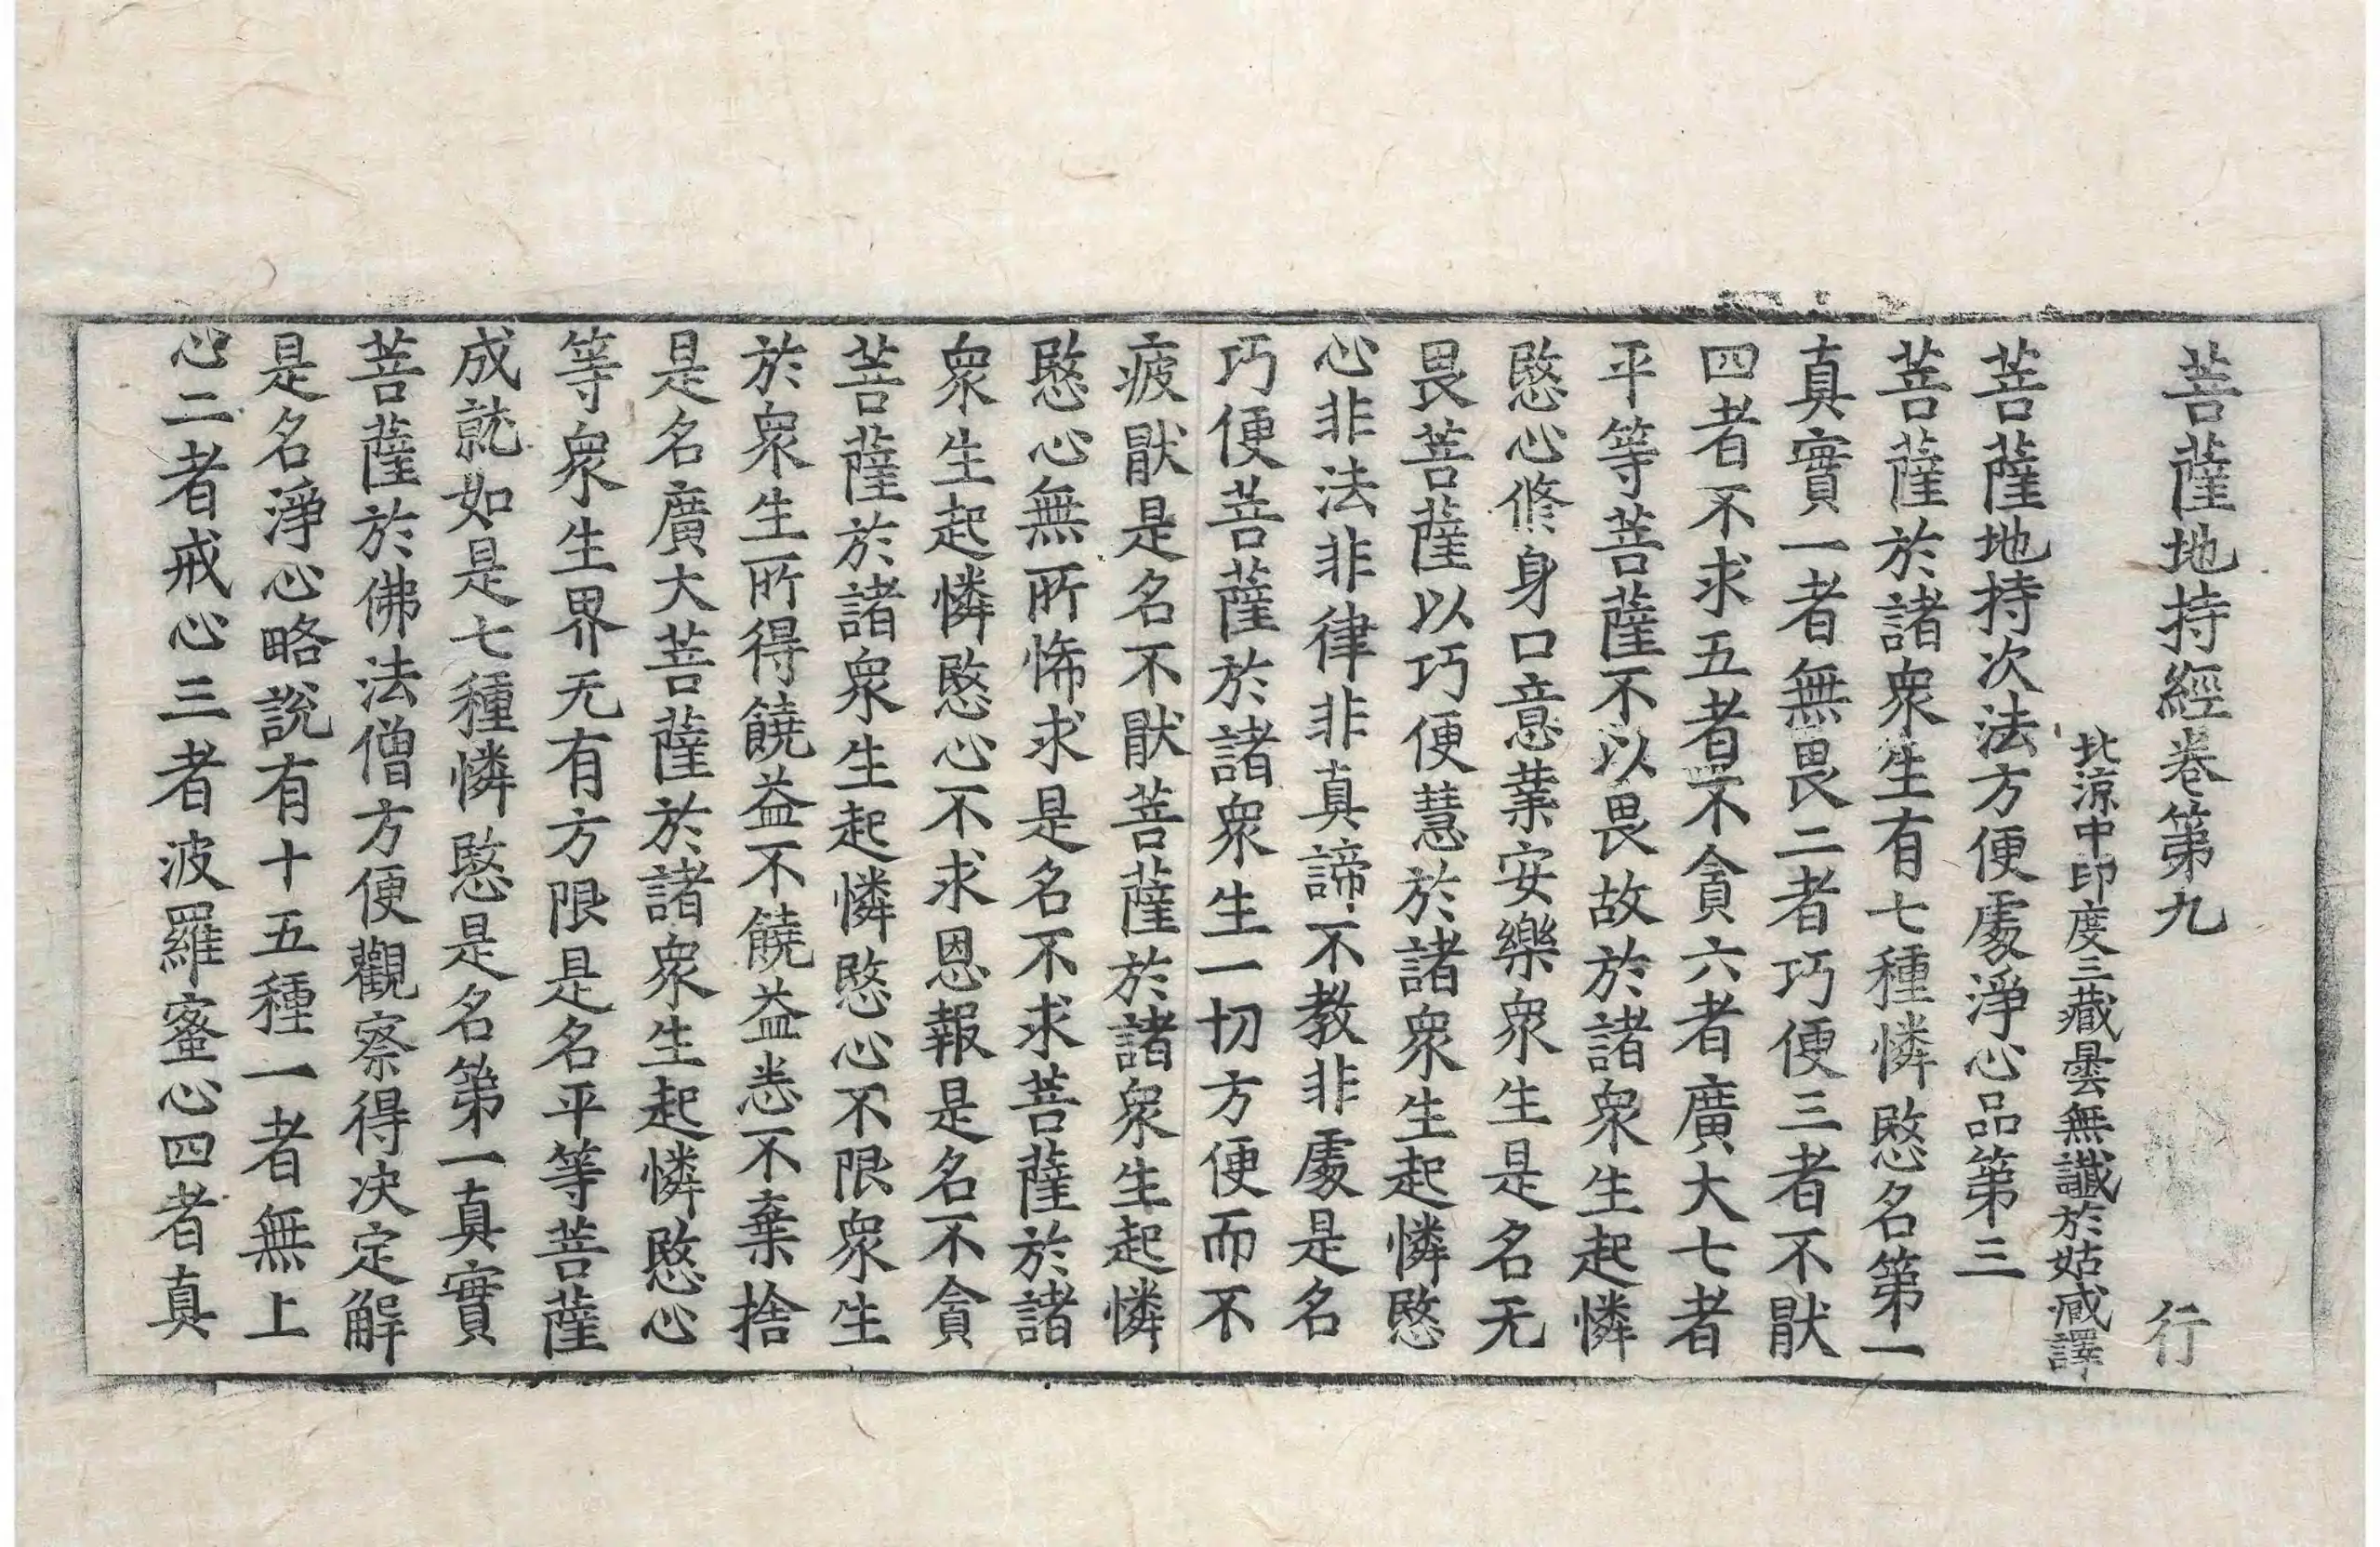 菩薩地持經卷第九　行
北涼中印度三藏曇無讖於姑臧譯
菩薩地持次法方便處淨心品第三
菩薩於諸衆生有七種憐愍名第一
真實一者無畏二者巧便三者不猒
四者不求五者不貪六者廣大七者
平等菩薩不以畏故於諸衆生起憐
愍心修身口意業安樂衆生是名无
畏菩薩以巧便慧於諸衆生起憐愍
心非法非律非真諦不教非處是名
巧便菩薩於諸衆生一切方便而不
疲猒是名不猒菩薩於諸衆生起憐
愍心無所悕求是名不求菩薩於諸
衆生起憐愍心不求恩報是名不貪
菩薩於諸衆生起憐愍心不限衆生
於衆生所得饒益不饒益悉不棄捨
是名廣大菩薩於諸衆生起憐愍心
等衆生界无有方限是名平等菩薩
成就如是七種憐愍是名第一真實
菩薩於佛法僧方便觀察得决定解
是名淨心略說有十五種一者無上
心二者戒心三者波羅蜜心四者真